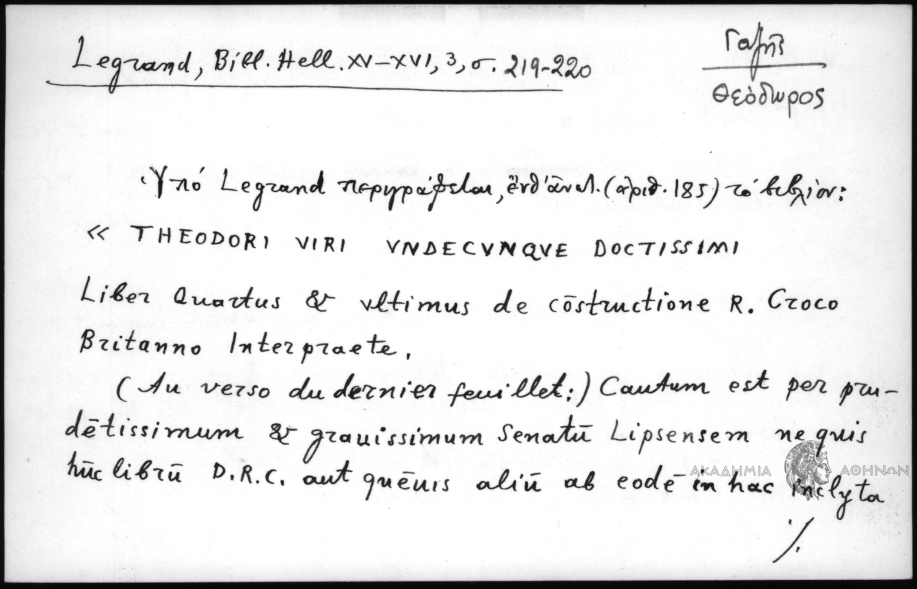 Legrand, Bibl. Hell. XV-XVI, 3, σ. 219-220
Γαζῆς
Θεόδωρος
Ὑπό Legrand περιγράφεται, ἐνθ' ἀνωτ. (ἀριθ. 185) τό βιβλίον:
« THEODORI VIRI VNDECVNQVE DOCTISSIMI
Liber Quartus & vltimus de cōstructione R. Croco
Britanno Interpraete.
(Au verso du dernier feuillet:) Cautum est per pru-
dētissimum & grauissimum Senatū Lipsensem ne quis
hūc librū D.R.C. aut quēuis aliū ab eodē in hac inclyta
ΑΚΑΔΗΜΙΑ ΑΘΗΝΩΝ
./.